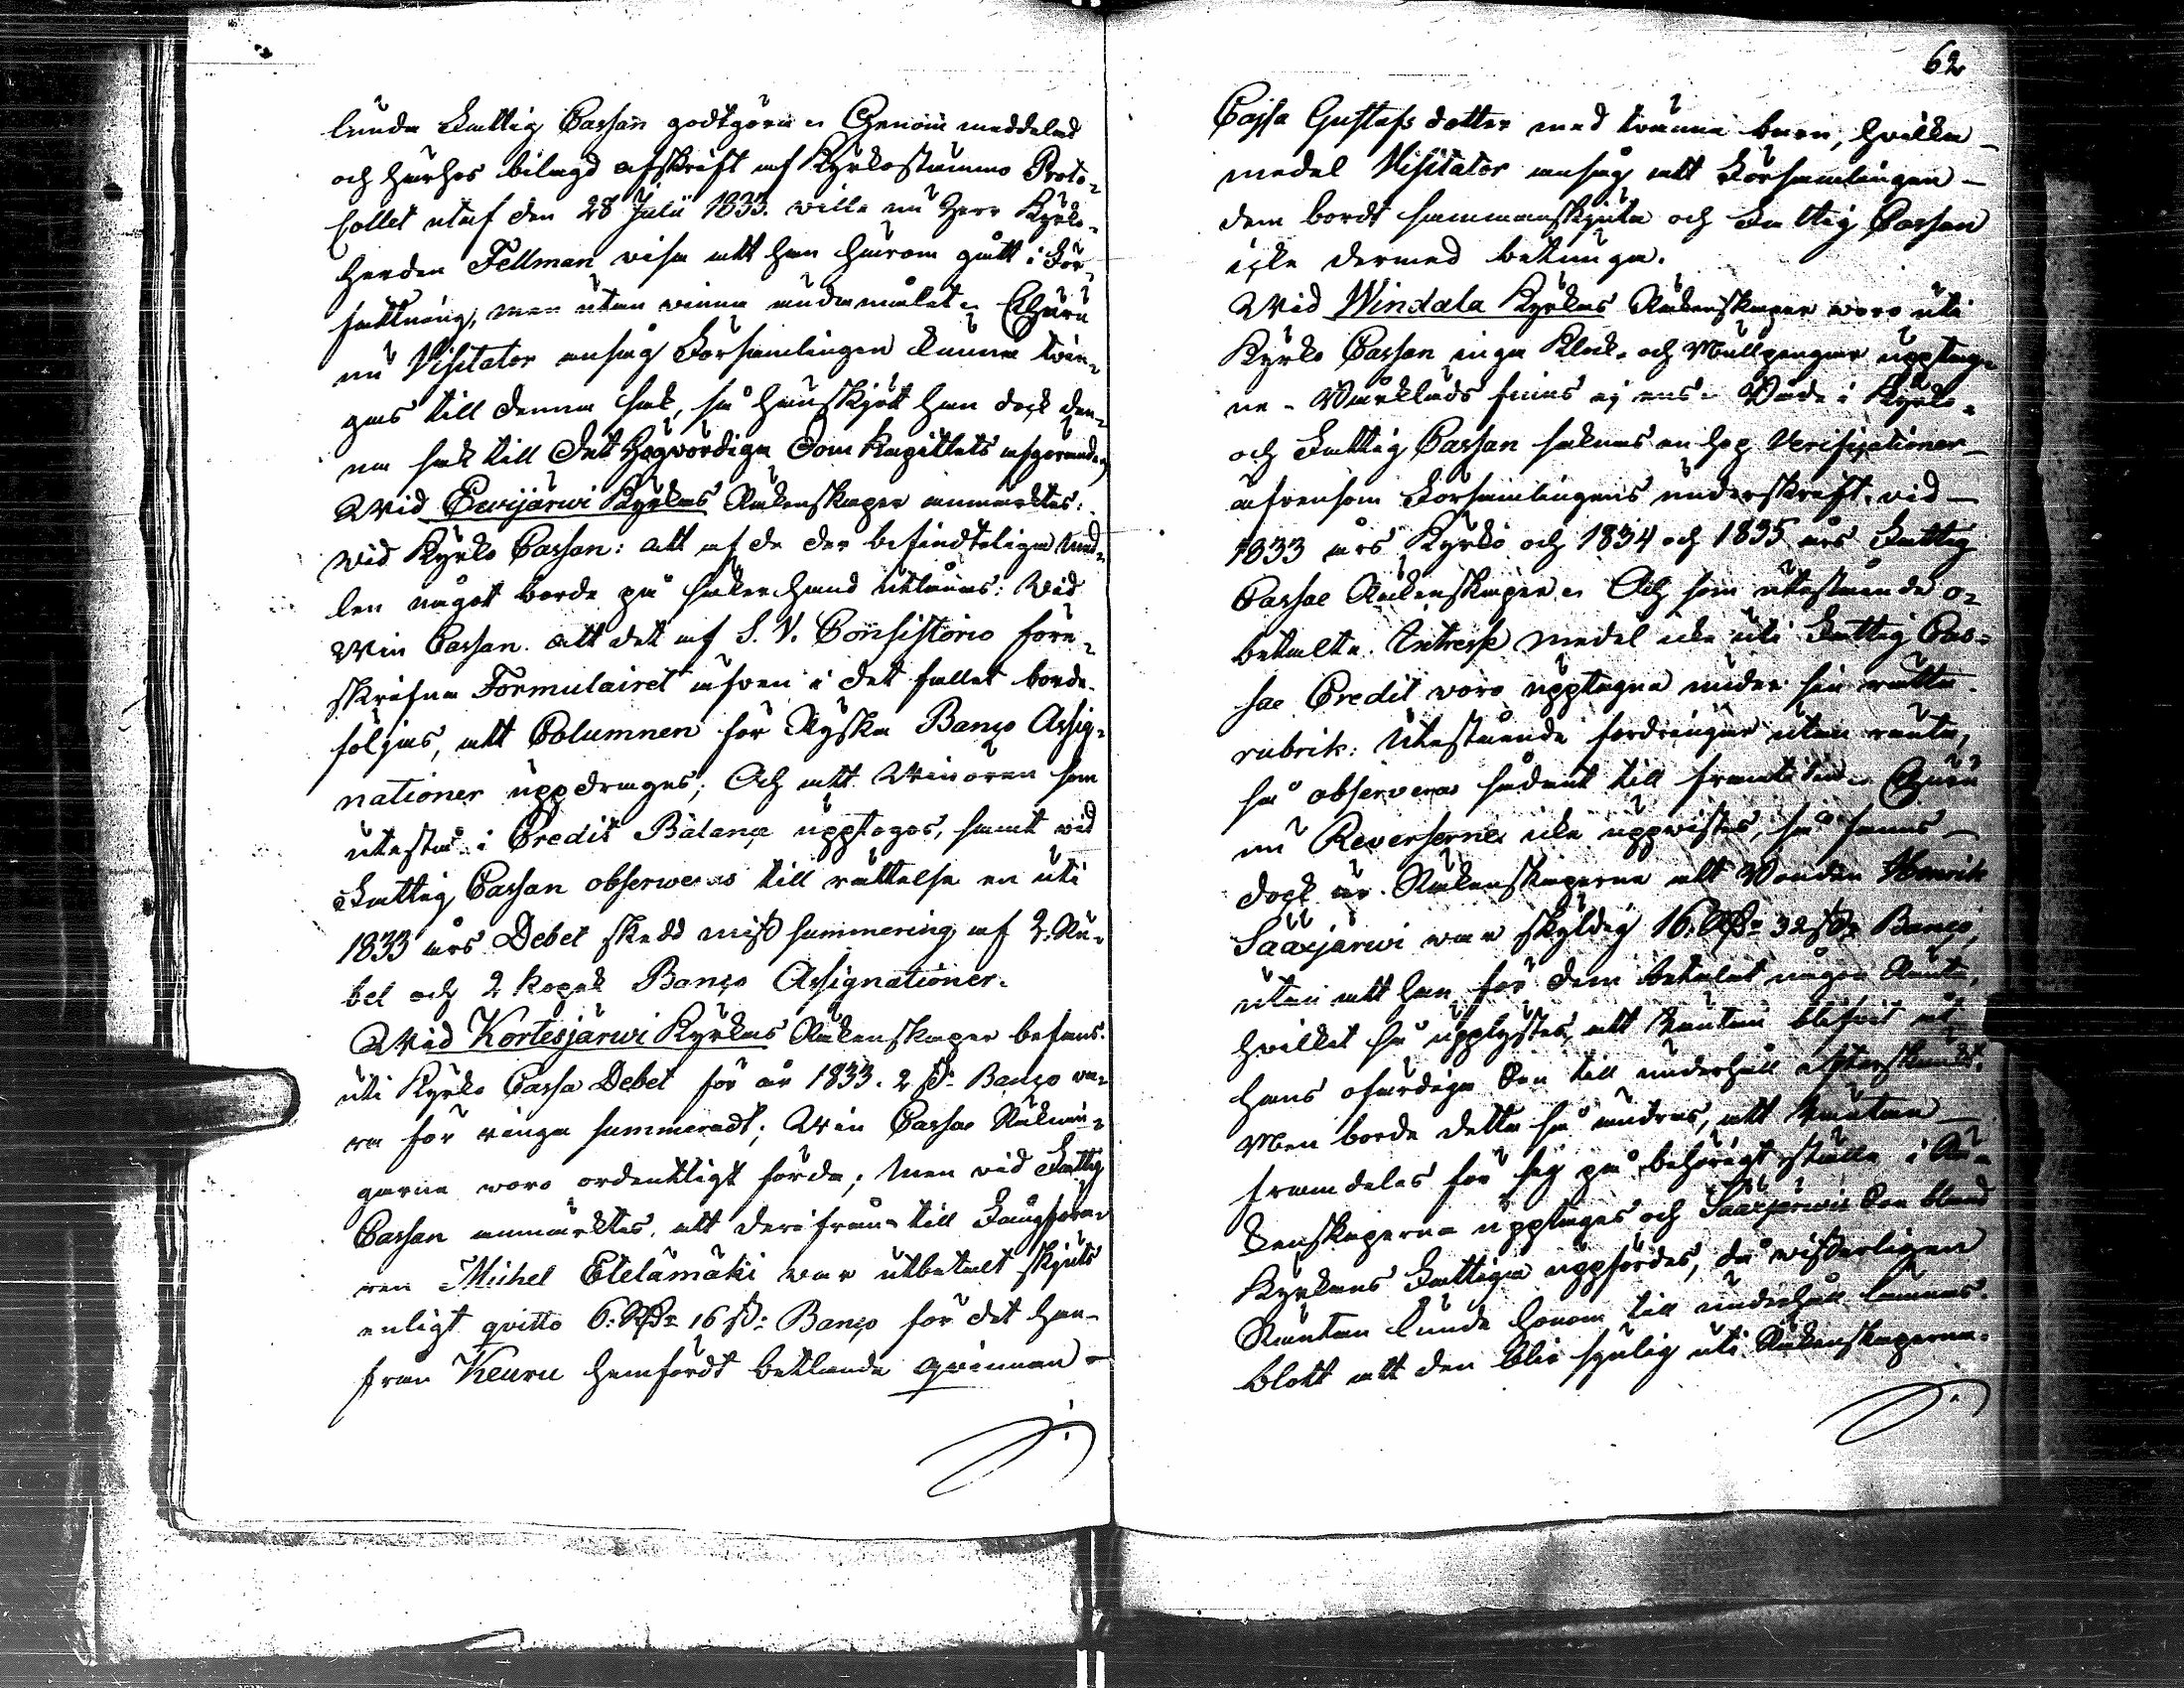 lunda Fattig Cassan godtgöra. Genom meddelad
och härhos bilagd afskrift af Kyrkostämmo Proto-
collet utaf den 28 Julii 1833. ville nu Herr Kyrko-
herden Fellman visa att han härom gått i För-
fattning, men utan vinna ändamålet. Ehuru
nu Visitator ansåg Församlingen kunna tvin-
gas till denna sak, så hänskjöt han dock den-
na sak till Det Högvördiga Dom Kapitlets afgörande,
Wid Ewijärwi Kyrkas Räkenskaper anmärktes:
Vid Kyrko Cassan: att af de der befindteliga Med-
len något borde på säker hand utlånas: Vid
Win Cassan. att det af S. V. Consistorio före-
skrifna Formulairet äfven i det fallet borde
följas, att Columnen för Ryska Banco Assig-
nationer uppdrages; Och att Winören som
utestå i Credit Balance upptogos, samt vid
Fattig Cassan observeras till rättelse en uti
1833 års Debet skedd miß summering af 3. Ru-
bel och 2 kopek Banco Assignationer.
Wid Kortesjärwi Kyrkas Räkenskaper befans
uti Kyrko Cassa Debet för år 1833. 2 ß: Banco va-
ra för ringa summeradt; Win Cassae Räknin-
garna voro ordentligt förda; Men vid Fattig
Cassan anmärktes. att derifrån till Fångföra-
ren Michel Etelämäki var utbetalt skjuts
enligt qvitto 6: Rß: 16 ß: Banco för det han
från Keuru hemfördt bettlande qvinnan
62
Cajsa Gustafs dotter med tvänne barn, hvilka
medel Visitator ansåg att Församlingen
dem bordt sammanskjuta och Fattig Cassan
icke dermed betunga.
Wid Windala Kyrkas Räkenskaper voro uti
Kyrko Cassan inga Klock- och Mullpengar upptag-
ne. Bårkläds finns ej ens. Både i Kyrko-
och Fattig Cassan saknas en hop Verificationer
äfvensom Församlingens underskrift vid
1833 års Kyrko och 1834 och 1835 års Fattig
Cassae Räkenskaper. Och som utestående o-
betalte Intresse medel icke uti Fattig Cas-
sae Credit voro upptagna under sin rätta
rubrik: Utestående fordringar utan ränta,
så observeras sådant till framtiden. Ehuru
nu Reverserne icke uppvistes, så fanns
dock ur Räkenskaperna att Bonden Henrik
Sääxjärwi var skyldig 16: Rß: 32 ß: Banco,
utan att han för dem betalat någon Ränta,
hvilket så upplystes, att Räntan blifvit åt
hans ofärdiga Son till underhåll efterskänkt.
Men borde detta så ändras, att Räntan
framdeles för sig på behörigt ställe i Rä-
kenskaperna upptages och Sääxjärwis Son bland
Kyrkans Fattiga uppfördes, då visserligen
Räntan kunde honom till underhåll lämnas.
blott att den blir synlig uti Räkenskaperna.